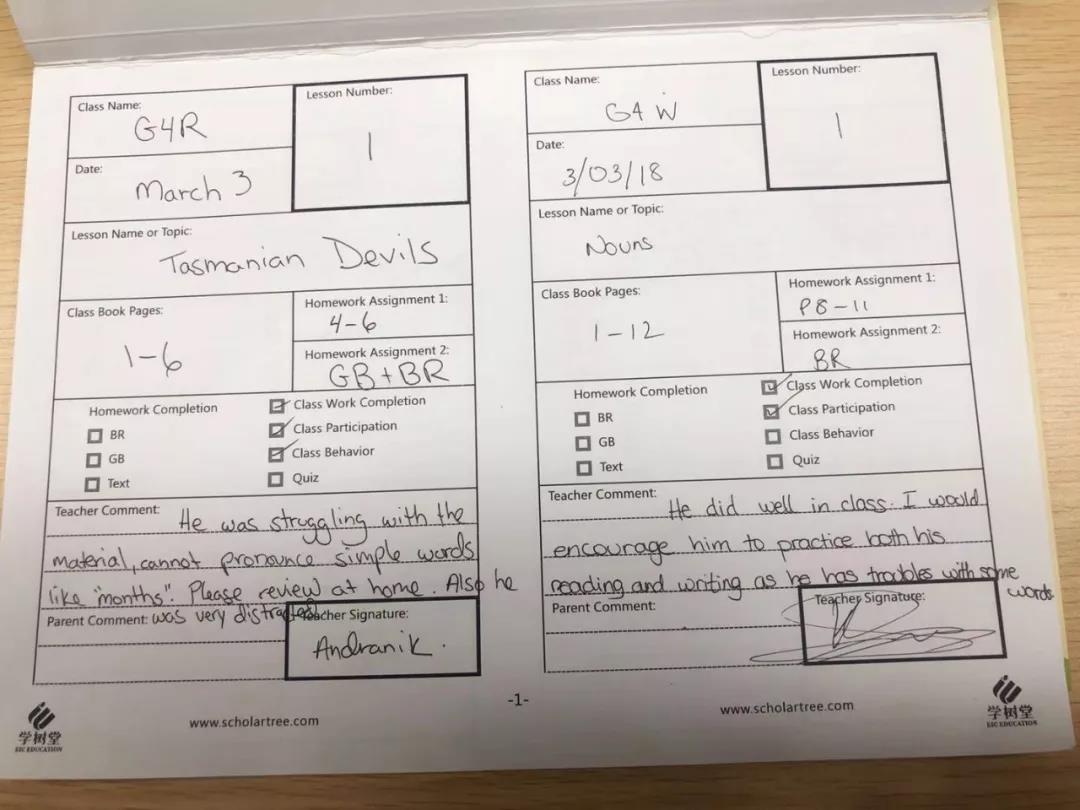 Class Name:
G4R
Lesson Number:
1
Date:
March 3
Lesson Name or Topic:
Tasmanian Devils
Class Book Pages:
1-6
Homework Assignment 1:
4-6
Homework Assignment 2:
GB+BR
Homework Completion
BR
GB
Text
Class Work Completion
Class Participation
Class Behavior
Quiz
Teacher Comment: He was struggling with the
material, cannot pronounce simple words
like "months". Please review at home. Also he
was very distracted
Parent Comment:
Teacher Signature:
Andranik.
www.scholartree.com
学树堂
EIC EDUCATION
-1-
Class Name:
G4 W
Lesson Number:
1
Date:
3/03/18
Lesson Name or Topic:
Nouns
Class Book Pages:
1-12
Homework Assignment 1:
P8-11
Homework Assignment 2:
BR
Homework Completion
BR
GB
Text
Class Work Completion
Class Participation
Class Behavior
Quiz
Teacher Comment: He did well in class. I would
encourage him to practice both his
reading and writing as he has troubles with some
words
Parent Comment:
Teacher Signature:
www.scholartree.com
学树堂
EIC EDUCATION